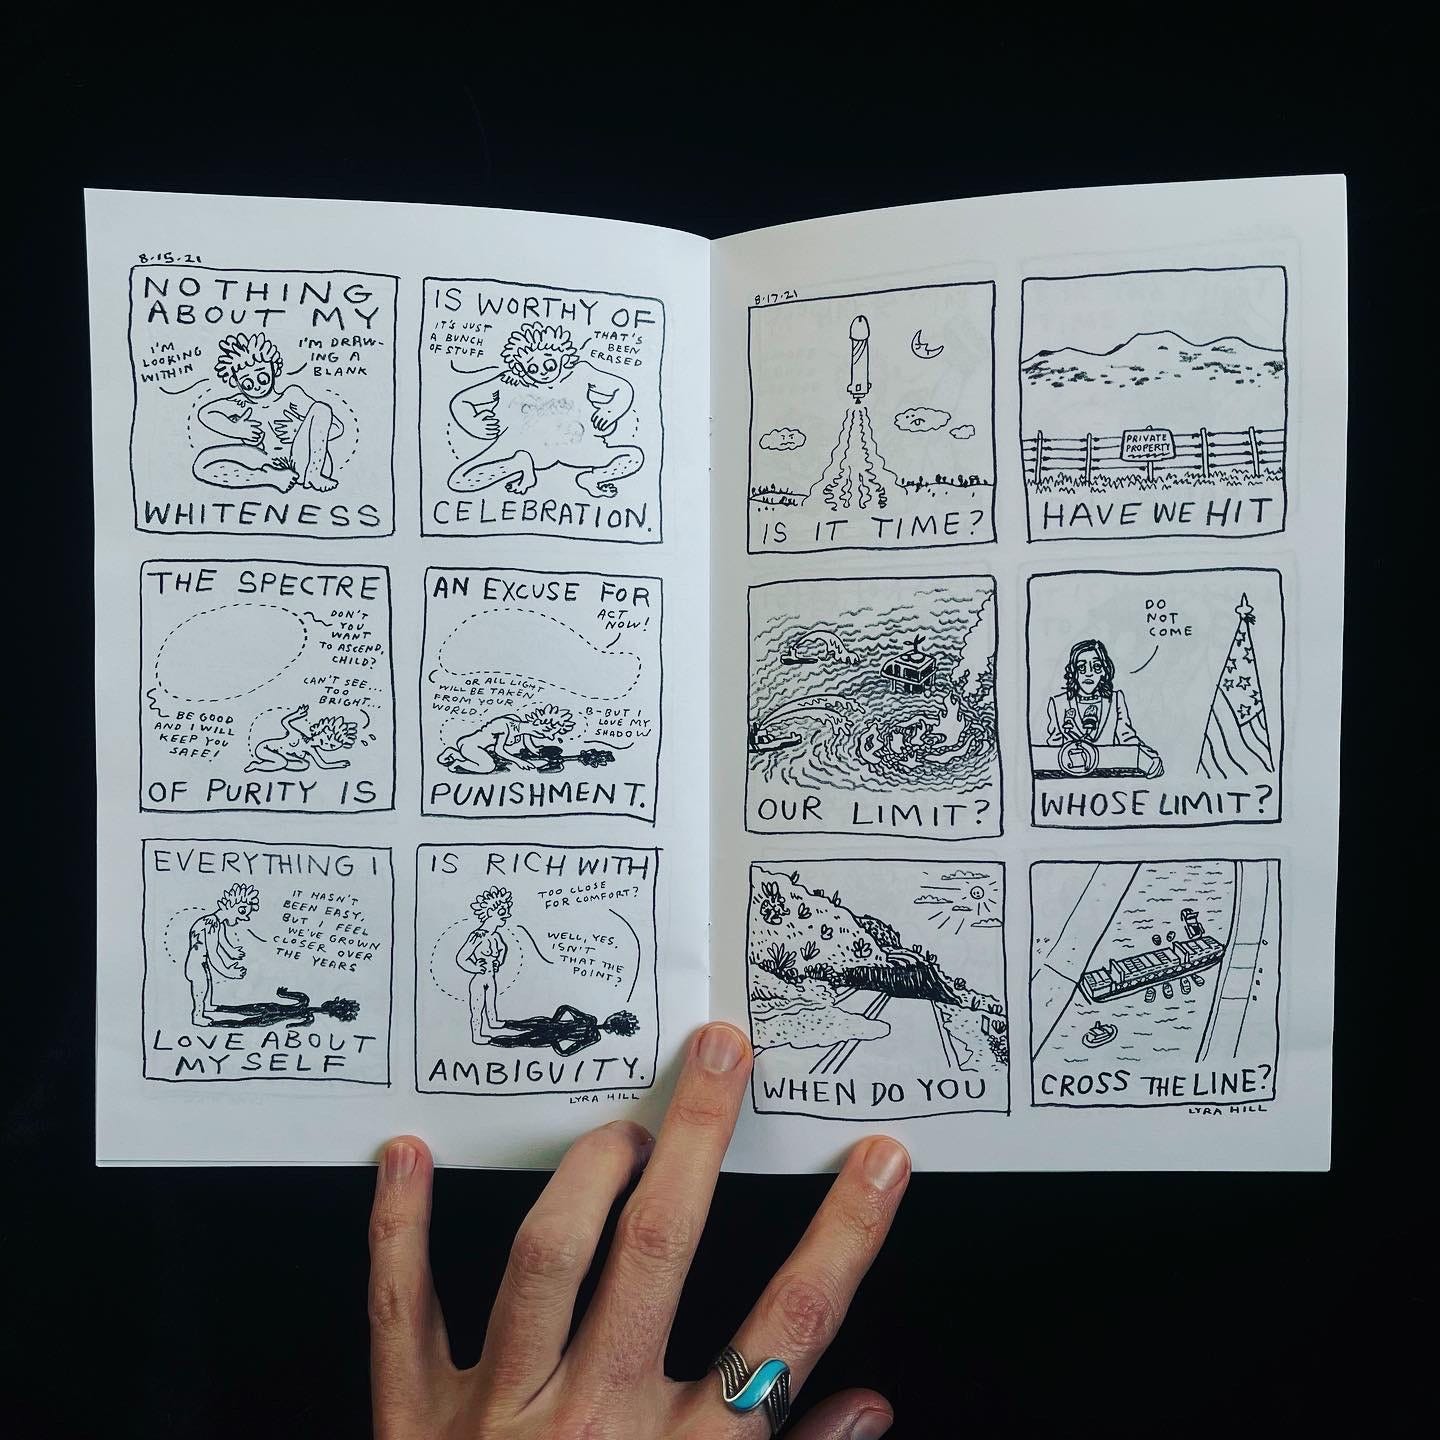 8.15.21
NOTHING
ABOUT MY
I'M
LOOKING
WITHIN
I'M DRAW-
ING A
BLANK
WHITENESS
IS WORTHY OF
IT'S JUST
A BUNCH
OF STUFF
THAT'S
BEEN
ERASED
CELEBRATION.
THE SPECTRE
DON'T
YOU
WANT
TO ASCEND,
CHILD?
CAN'T SEE...
TOO
BRIGHT...
BE GOOD
AND I WILL
KEEP YOU
SAFE!
OF PURITY IS
AN EXCUSE FOR
ACT
NOW!
OR ALL LIGHT
WILL BE TAKEN
FROM YOUR
WORLD!
B-BUT I
LOVE MY
SHADOW
PUNISHMENT.
EVERYTHING I
IT HASN'T
BEEN EASY,
BUT I FEEL
WE'VE GROWN
CLOSER OVER
THE YEARS
LOVE ABOUT
MY SELF
IS RICH WITH
TOO CLOSE
FOR COMFORT?
WELL, YES.
ISN'T
THAT THE
POINT?
AMBIGUITY.
LYRA HILL
8.17.21
IS IT TIME?
PRIVATE
PROPERTY
HAVE WE HIT
OUR LIMIT?
DO
NOT
COME
WHOSE LIMIT?
WHEN DO YOU
CROSS THE LINE?
LYRA HILL